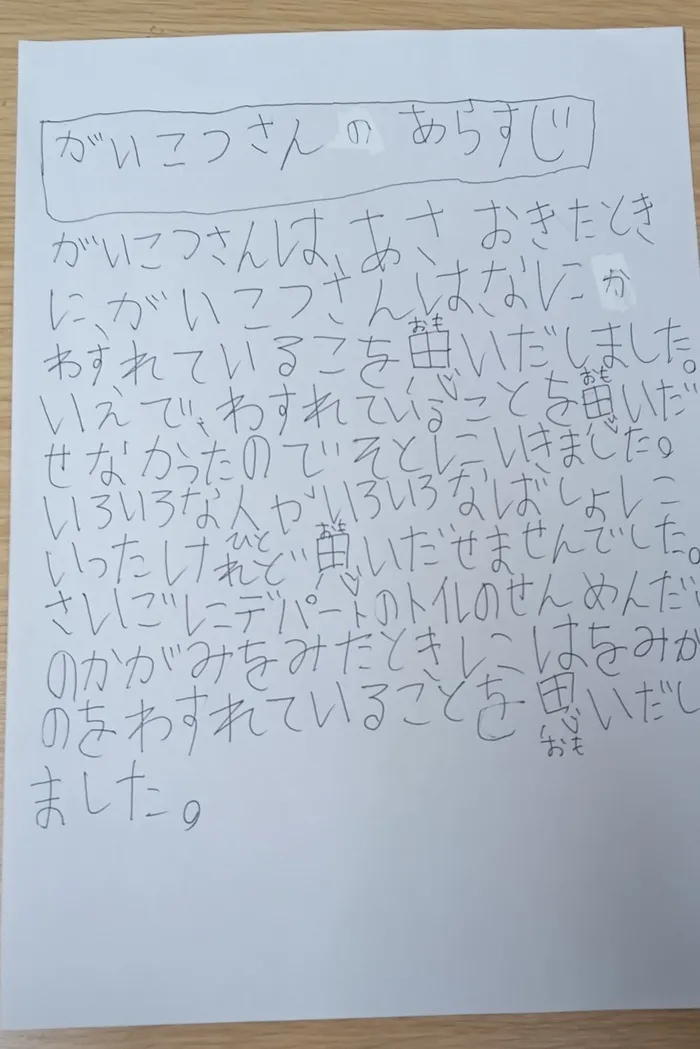 がいこつさんのあらすじ
がいこつさんは、あさ おきたとき
に、がいこつさんはなにか
わすれているこを思いだしました。
おも
いえで、わすれていることを思いだ
おも
せなかったのでそとにいきました。
いろいろな人がいろいろなばしょに
ひと
いったけれど思いだせませんでした。
おも
さいごにデパートのトイレのせんめんだい
のかがみをみたときにはをみが
のをわすれていることを思いだし
おも
ました。